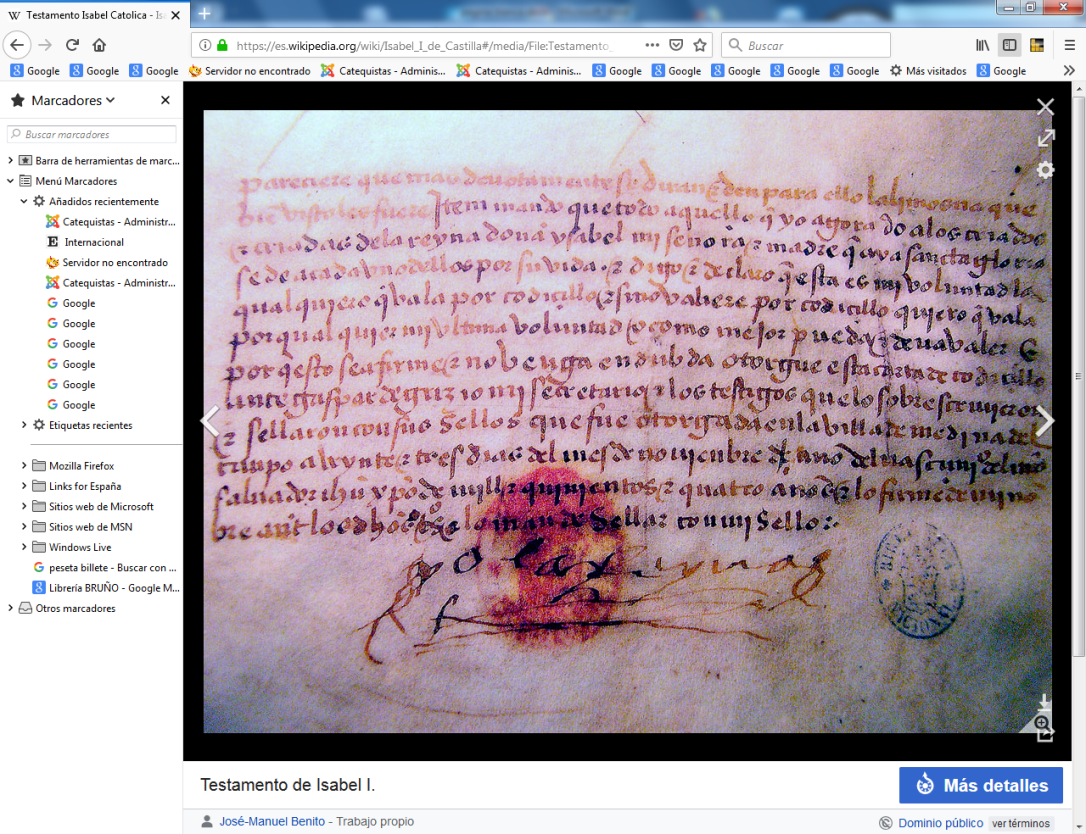 Testamento Isabel Catolica - Isa
https://es.wikipedia.org/wiki/Isabel_I_de_Castilla#/media/File:Testamento_
Buscar
Google
Google
Google
Servidor no encontrado
Catequistas - Adminis...
Catequistas - Adminis...
Google
Google
Google
Google
Google
Más visitados
Google
Marcadores
Buscar marcadores
Barra de herramientas de marc...
Menú Marcadores
Añadidos recientemente
Catequistas - Administr...
Internacional
Servidor no encontrado
Catequistas - Administr...
Google
Google
Google
Google
Google
Google
Etiquetas recientes
Mozilla Firefox
Links for España
Sitios web de Microsoft
Sitios web de MSN
Windows Live
peseta billete - Buscar con ...
Librería BRUÑO - Google M...
Otros marcadores
pareciere que mas devotamente se diran e den para ello la limosna que
bien visto les fuere Item mando que todo aquello q yo agora do a los criados
e criadas dela reyna doña ysabel mi señora e madre q aya sancta gloria
se de a cada uno dellos por su vida e digo e declaro q esta es mi voluntad la
qual quiero q vala por codicillo e si no valiere por codicillo quiero q vala
por qual quier mi ultima voluntad o como mejor pueda e deva valer E
por q esto sea firme e no venga en dubda otorgue esta carta de codicillo
ante gaspar de grizio mi secretario e los testigos que lo sobrescrivieron
e sellaron con sus sellos que fue otorgada en la villa de medina del
campo a veynte e tres dias del mes de noviembre año del nascimi del nro
salvador ihu xpo de mill e quinientos e quatro años e lo firme de mi no
bre e lo mande sellar con mi sello
yo la reyna
Testamento de Isabel I.
Más detalles
José-Manuel Benito - Trabajo propio
Dominio público
ver términos